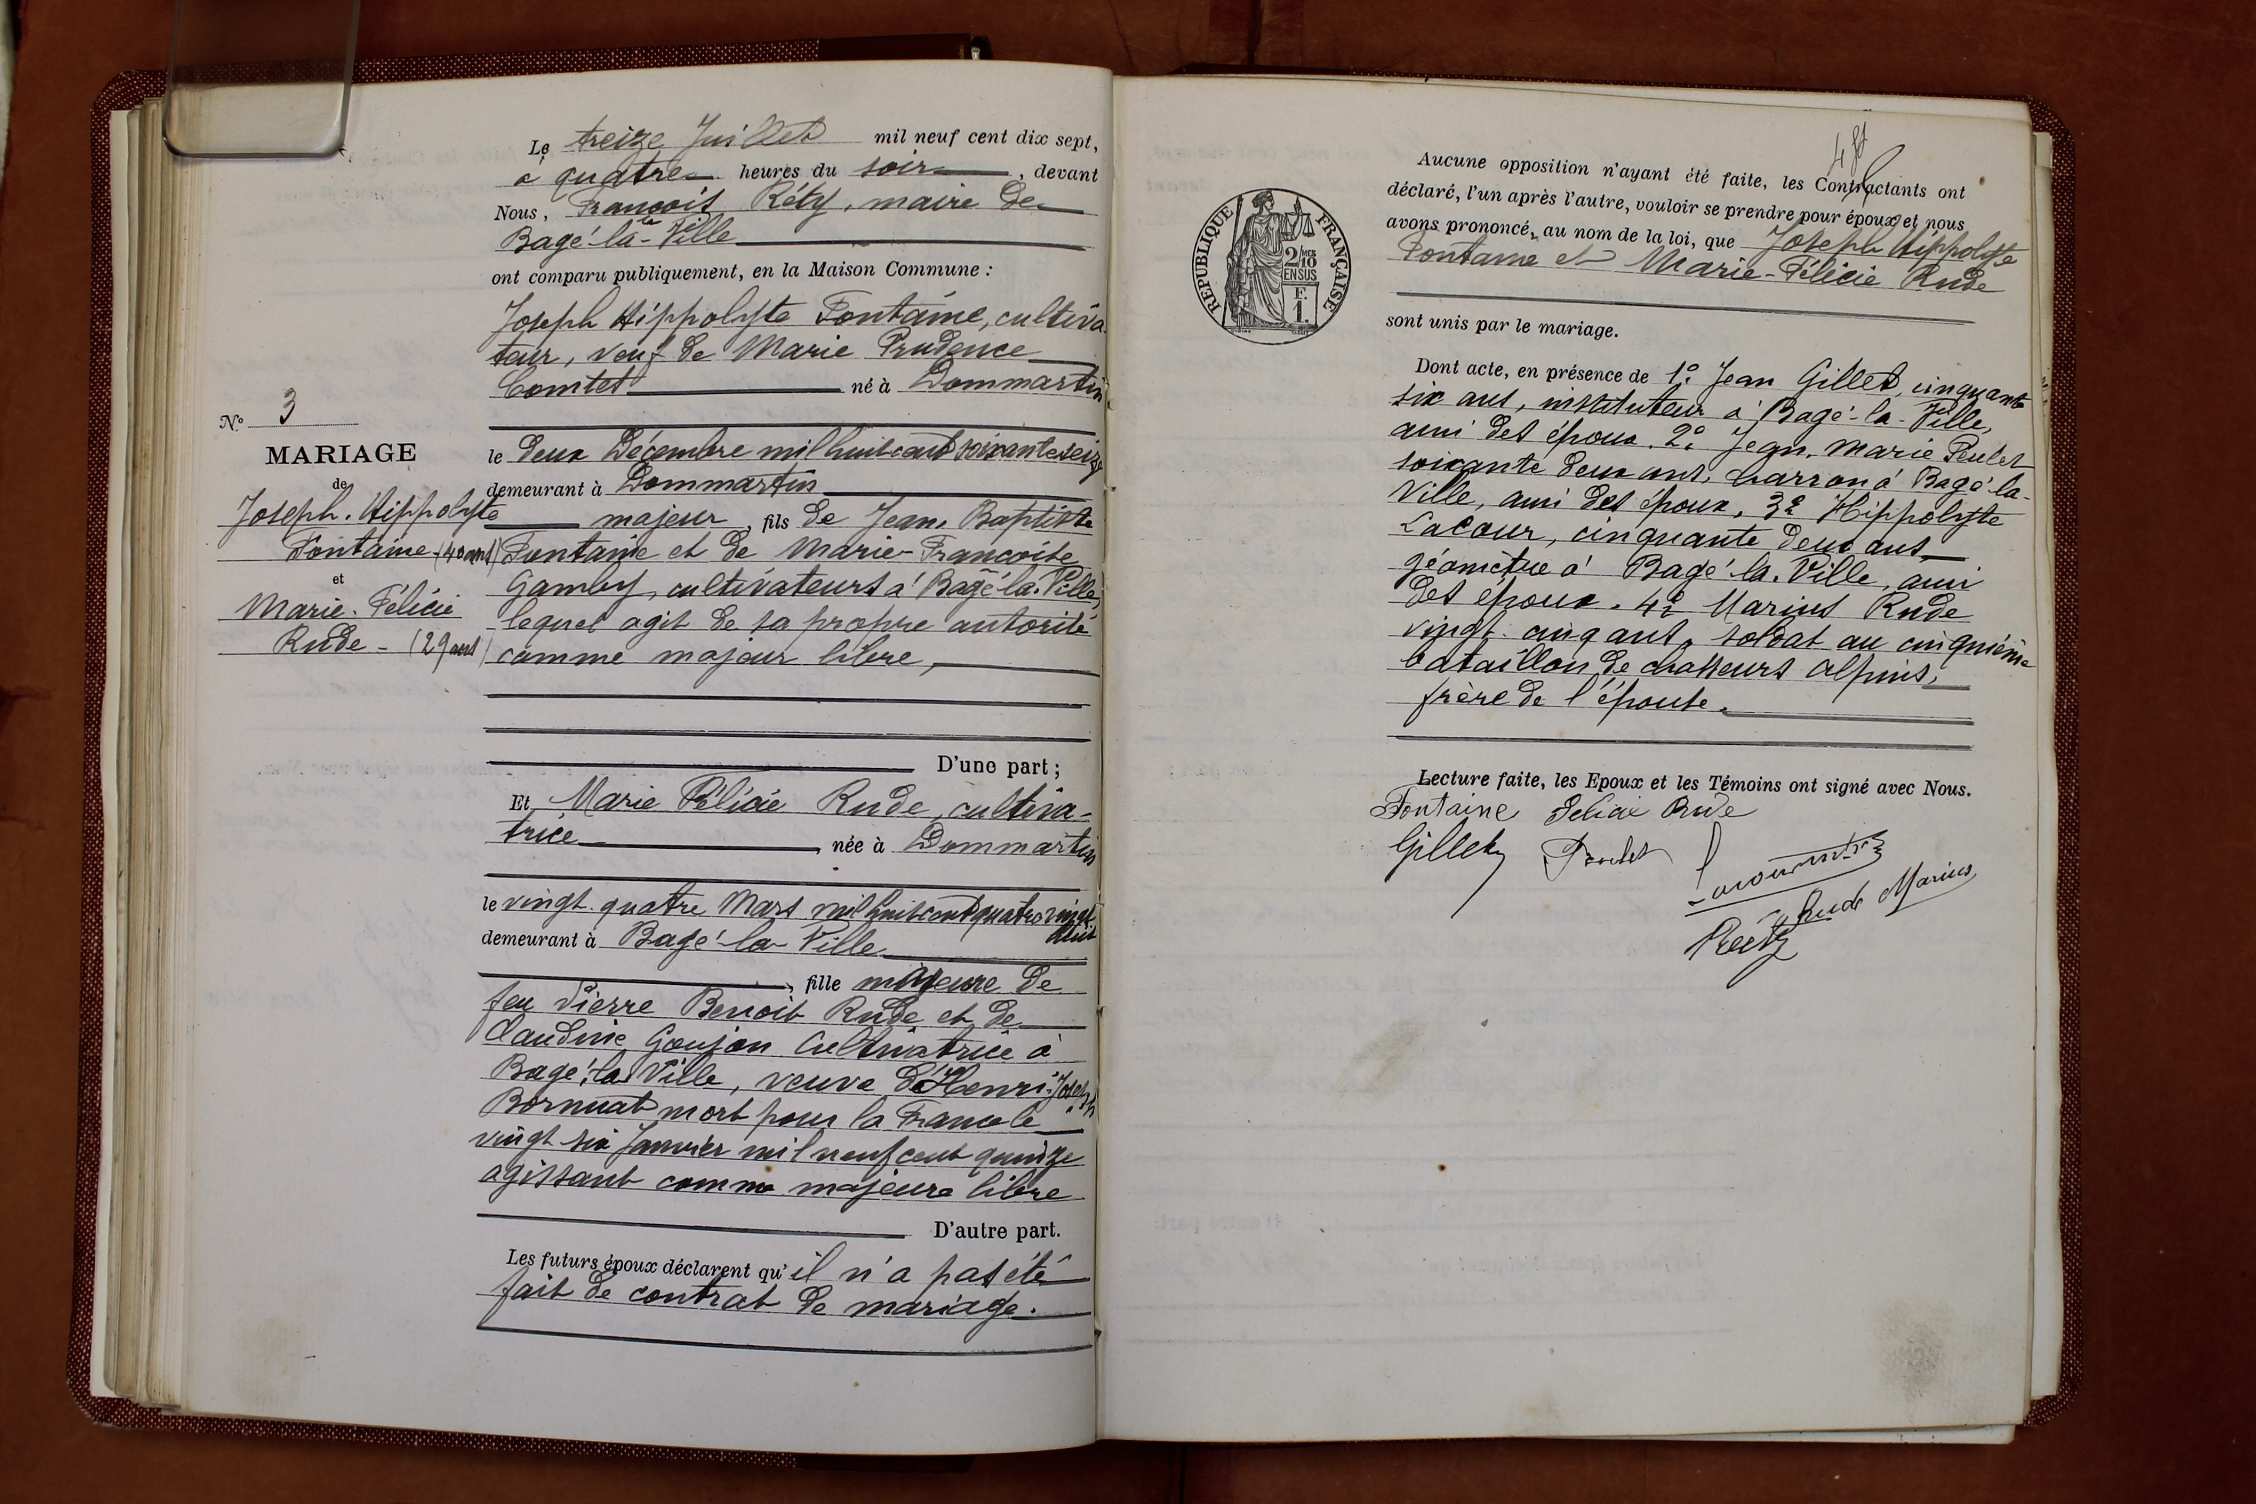 Le treize Juillet mil neuf cent dix sept,
à quatre heures du soir, devant
Nous, François Réty, maire de
Bagé-la-Ville
ont comparu publiquement, en la Maison Commune :
Joseph Hippolyte Fontaine, cultiva-
teur, veuf de Marie Prudence
Comtet né à Dommartin
le deux Décembre mil huit cent soixante seize
demeurant à Dommartin
majeur, fils de Jean, Baptiste
Fontaine et de Marie-Françoise
Gamby, cultivateurs à Bagé-la-Ville,
lequel agit de sa propre autorité
comme majeur libre,
D'une part ;
Et Marie Félicie Rude, cultiva-
trice, née à Dommartin
le vingt-quatre Mars mil huit cent quatre vingt
huit
demeurant à Bagé-la-Ville
, fille majeure de
feu Pierre Benoit Rude et de
Claudine Goujon Cultivatrice à
Bagé-la-Ville, veuve d'Henri-Joseph
Bornuat mort pour la France le
vingt six Janvier mil neuf cent quinze
agissant comme majeure libre
D'autre part.
Les futurs époux déclarent qu'il n'a pas été
fait de contrat de mariage.
N° 3
MARIAGE
de
Joseph. Hippolyte
Fontaine (40 ans)
et
Marie. Félicie
Rude - (29 ans)
Aucune opposition n'ayant été faite, les Contractants ont
déclaré, l'un après l'autre, vouloir se prendre pour époux et nous
avons prononcé, au nom de la loi, que Joseph Hippolyte
Fontaine et Marie-Félicie Rude
sont unis par le mariage.
Dont acte, en présence de 1° Jean Gillet, cinquante
six ans, instituteur à Bagé-la-Ville,
ami des époux. 2° Jean, Marie Peulet
soixante deux ans, charron à Bagé-la-
Ville, ami des époux, 3° Hippolyte
Lacour, cinquante deux ans,
géomètre à Bagé-la-Ville, ami
des époux. 4° Marius Rude
vingt-cinq ans, soldat au cinquième
bataillon de chasseurs alpins,
frère de l'épouse.
Lecture faite, les Epoux et les Témoins ont signé avec Nous.
Fontaine Félicie Rude
Gillet
Rude Marius
Réty
RÉPUBLIQUE FRANÇAISE
2/10
EN SUS
F.
1.